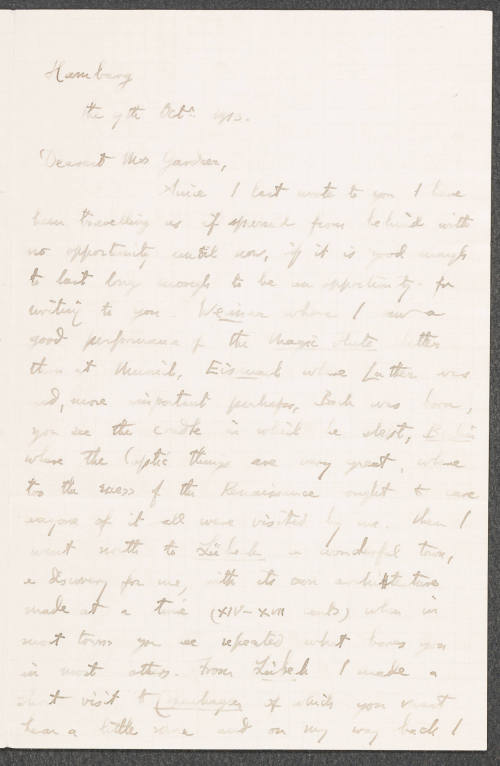 Hamburg
the 9th Oct. 1913.
Dearest Mrs Gardner,
Since I last wrote to you I have
been travelling as if spurred from behind with
no opportunity until now, if it is good enough
to last long enough to be an opportunity for
writing to you. Weimar where I saw a
good performance of the Magic Flute better
than at Munich, Eisenach where Luther was
and, more important perhaps, Bach was born,
you see the cradle in which he slept, Berlin
where the Coptic things are very great, where
too the excess of the Renaissance ought to cure
anyone of it all were visited by me. Then I
went north to Lübeck a wonderful town,
a discovery for me, with its own architecture
made at a time (XIV–XVII cents) when in
most towns you see repeated what bores you
in most others. From Lübeck I made a
short visit to Copenhagen of which you must
hear a little more and on my way back I